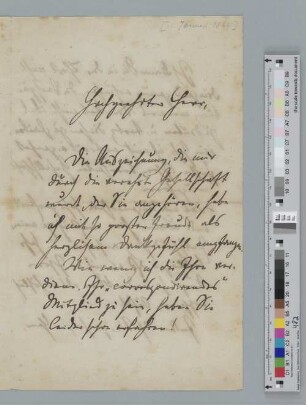 Hochgeehrter Herr,
Die Auszeichnung, die mir
durch die verehrte Gesellschaft
wurde, der Sie angehören, habe
ich mit so großer Freude als
herzlichem Dankgefühl empfangen.
Wie wenig ich die Ehre ver-
diene, Ihr „correspondirendes"
Mitglied zu sein, haben Sie
leider schon erfahren!